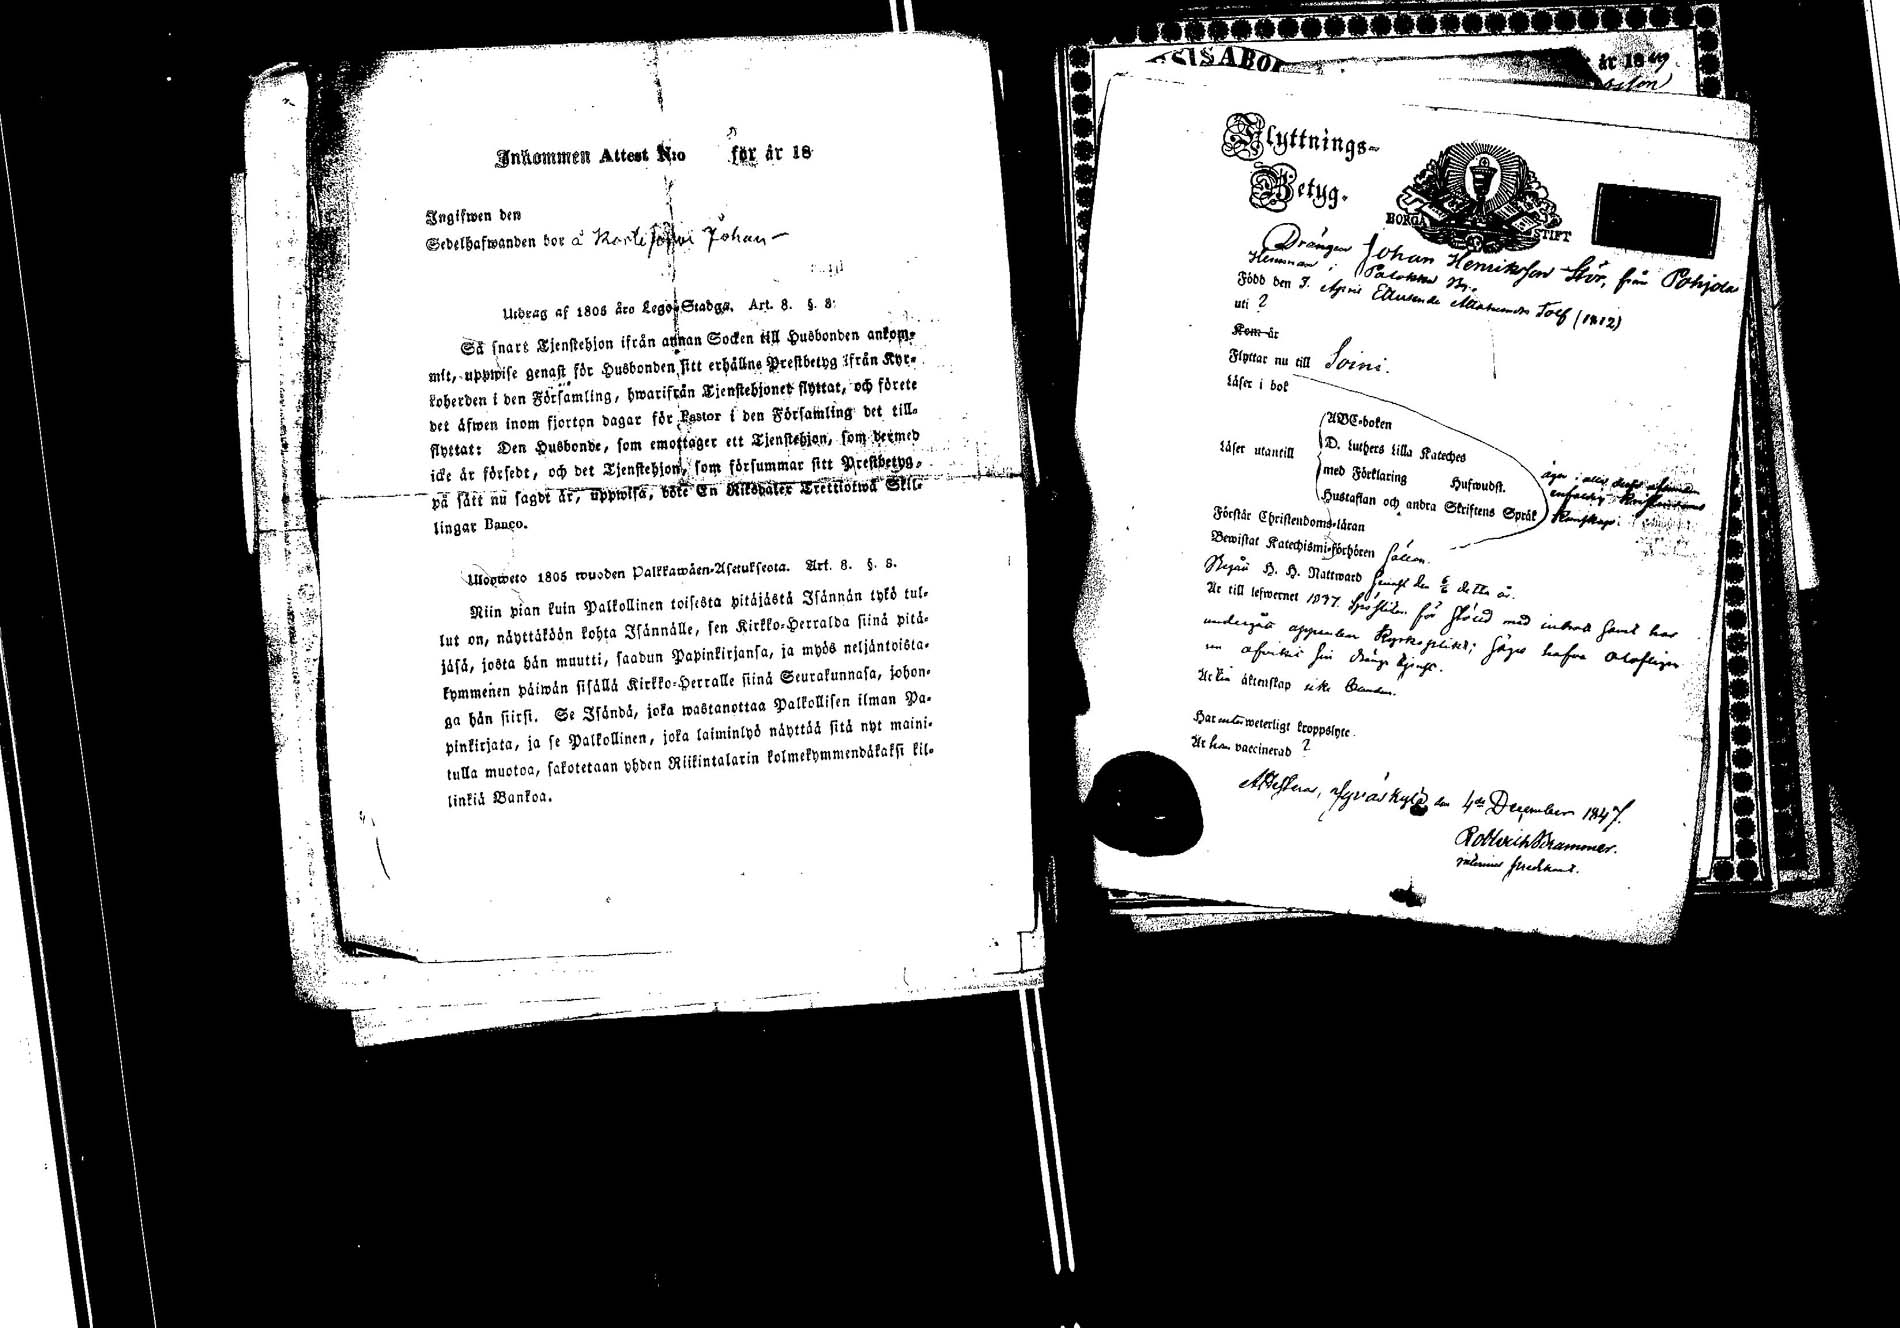 Inkommen Attest N:o för år 18
Ingifwen den
Sedelhafwanden bor å Johan
Utdrag af 1805 års Lego-Stadga. Art. 8. §. 8:
Så snart Tjenstehjon ifrån annan Socken till Husbonden ankom-
mit, uppwise genast för Husbonden sitt erhållne Prestbetyg ifrån Kyr-
koherden i den Församling, hwarifrån Tjenstehjonet flyttat, och förete
det äfwen inom fjorton dagar för Pastor i den Församling det till-
flyttat: Den Husbonde, som emottager ett Tjenstehjon, som dermed
icke är försedt, och det Tjenstehjon, som försummar sitt Prestbetyg,
på sätt nu sagdt är, uppwisa, böte En Riksdaler Trettiotwå Skil-
lingar Banco.
Ulosweto 1805 wuoden Palkkawäen-Asetuksesta. Art. 8. §. 8.
Niin pian kuin Palkollinen toisesta pitäjästä Isännän tykö tul-
lut on, näyttäköön kohta Isännälle, sen Kirkko-Herralda siinä pitä-
jäsä, josta hän muutti, saadun Papinkirjansa, ja myös neljäntoista-
kymmenen päiwän sisällä Kirkko-Herralle siinä Seurakunnasa, johon-
ga hän siirsi. Se Isändä, joka wastanottaa Palkollisen ilman Pa-
pinkirjata, ja se Palkollinen, joka laiminlyö näyttää sitä nyt maini-
tulla muotoa, sakotetaan yhden Riikintalarin kolmekymmendäkaksi kil-
linkiä Bankoa.
år 1849
Flyttnings-
Betyg.
BORGÅ STIFT
Drängen Johan Henriksson Stör, från Pohjola
Hemman i Palokka By.
Född den 7. April Ettusende Åttahundra Tolf (1812)
uti ?
Kom år
Flyttar nu till Soini.
Läser i bok
Läser utantill
ABC-boken
D. Luthers Lilla Kateches
med Förklaring Hufwudst.
Hustaflan och andra Skriftens Språk
äger i allt detta
enfaldig Kristendoms
Kunskap.
Förstår Christendoms-läran
Bewistat Katechismi-förhören sällan.
Begått H. H. Nattward senast den 6/6 detta år.
Är till lefwernet 1837. för stöld med inbrott samt har
undergått uppenbar Kyrkoplikt; säges hafva
sin
Är till äktenskap icke bunden.
Har intet weterligt kroppslyte.
Är han vaccinerad ?
Attesteras, Jyväskylä den 4de December 1847.